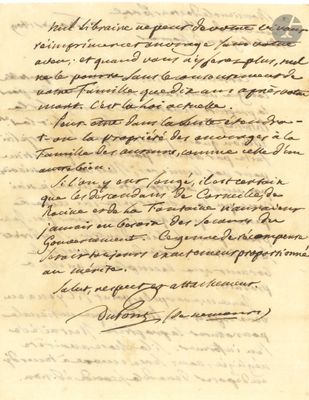 nul Libraire ne peut de votre vivant
réimprimer cet ouvrage sans votre
aveu, et quand vous n'y serez plus, nul
ne le pourra sans le consentement de
votre famille que dix ans après votre
mort. C'est la Loi actuelle.
Peut-être dans la suite étendra-t-
on la propriété des ouvrages à la
famille des auteurs, comme celle d'un
autre bien.
Si l'on y eut songé, il est certain
que les descendans de Corneille, de
Racine et de La Fontaine n'auraient
jamais eu besoin des secours du
Gouvernement. Ce genre de récompense
serait toujours exactement proportionné
au mérite.
Salut, respect et attachement.
DuPont (de Nemours)